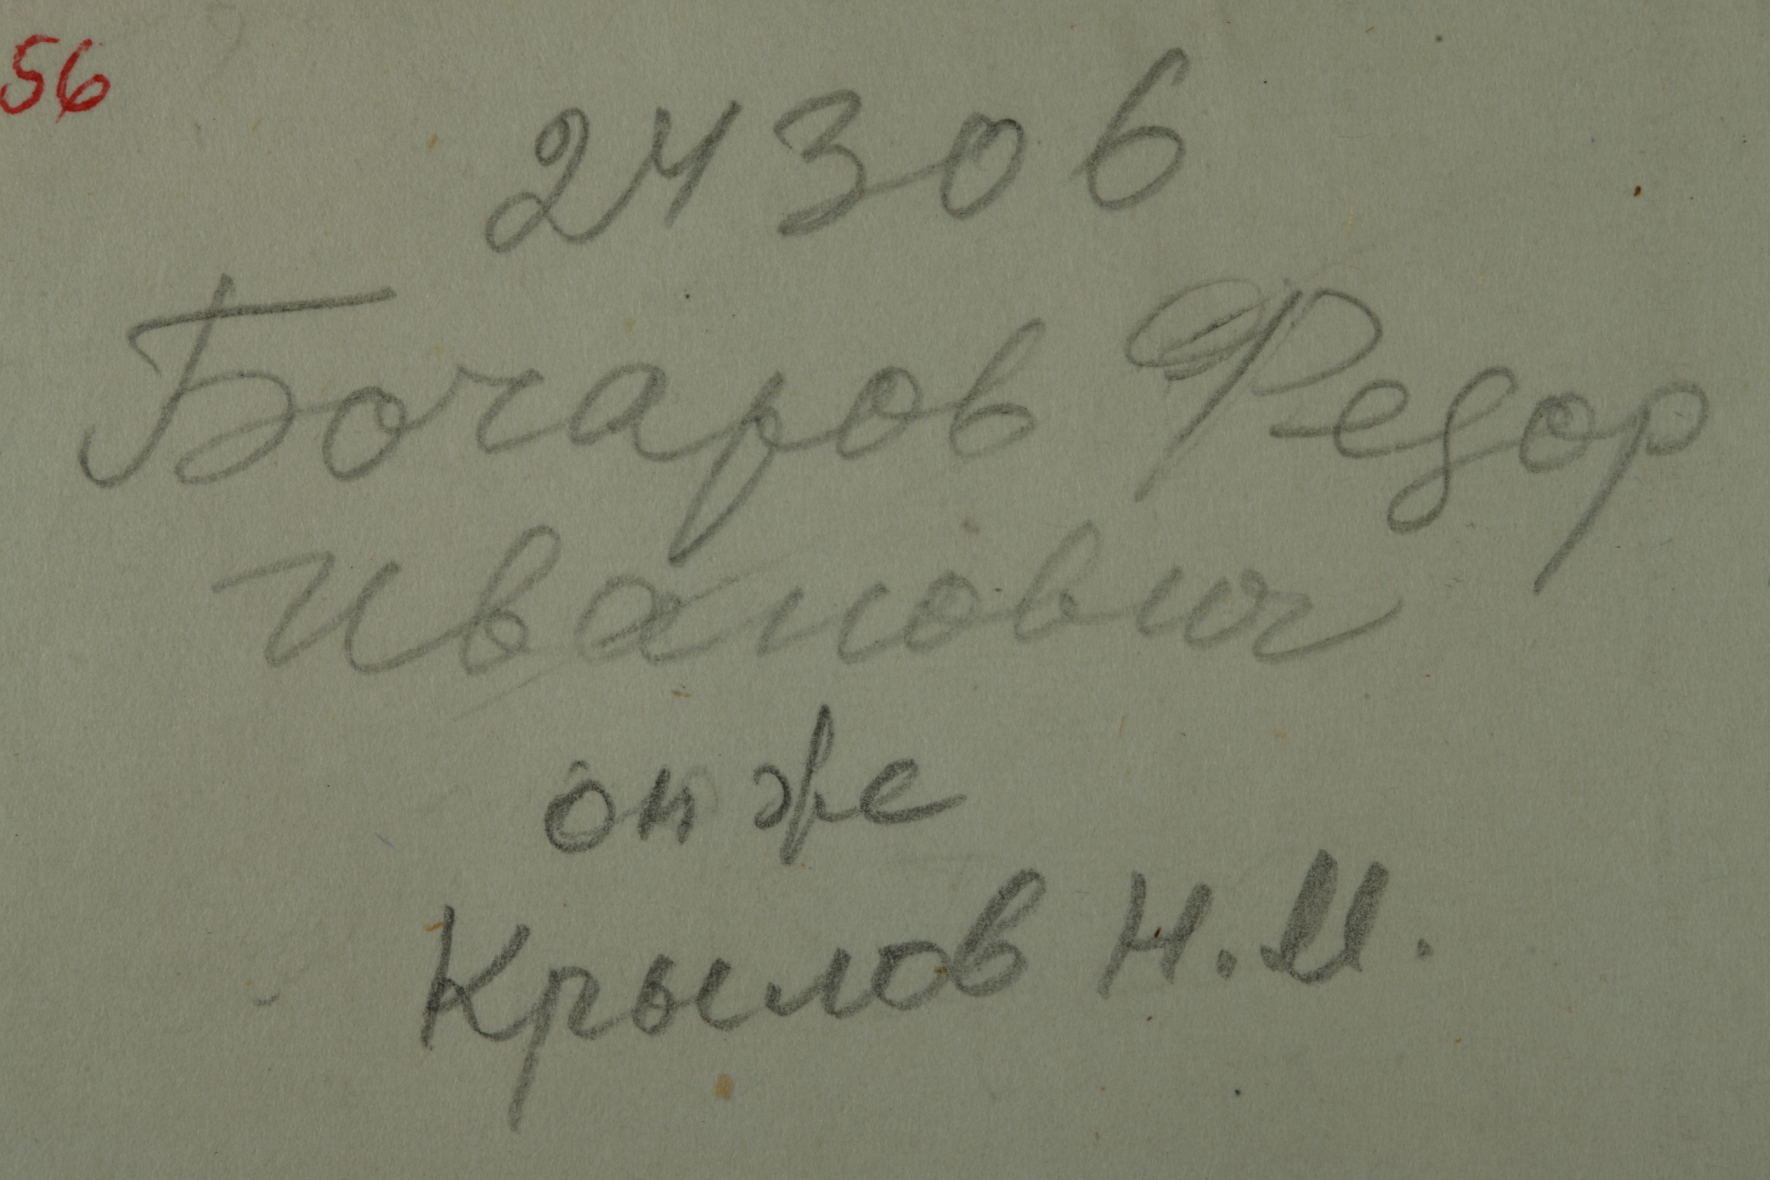 56
24306
Бочаров Федор
Иванович
он же
Крылов Н.И.